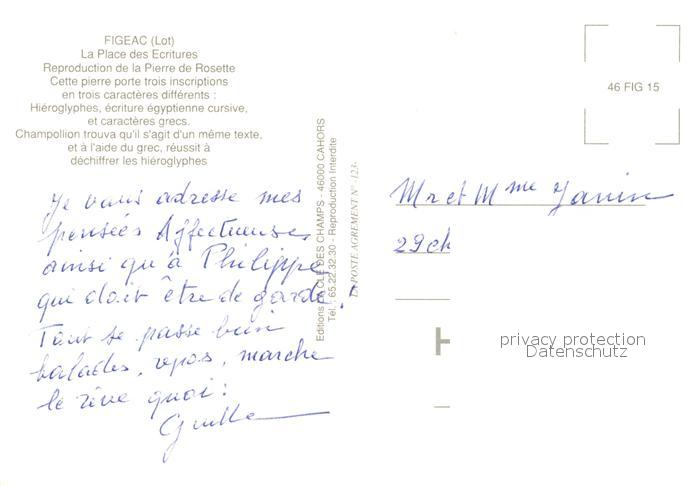 FIGEAC (Lot)
La Place des Ecritures
Reproduction de la Pierre de Rosette
Cette pierre porte trois inscriptions
en trois caractères différents :
Hiéroglyphes, écriture égyptienne cursive,
et caractères grecs.
Champollion trouva qu'il s'agit d'un même texte,
et à l'aide du grec, réussit à
déchiffrer les hiéroglyphes
Je vous adresse mes
pensées Affectueuses
ainsi qu'à Philippe
qui doit être de garde.
Tout se passe bien
balades, repos, marche
le rêve quoi !
Editions LA CLE DES CHAMPS - 46000 CAHORS
Tél. : 65.22.32.30 - Reproduction Interdite
LA POSTE AGREMENT N° -123-
46 FIG 15
Mr et Mme Janin
29 ch
H
privacy protection
Datenschutz